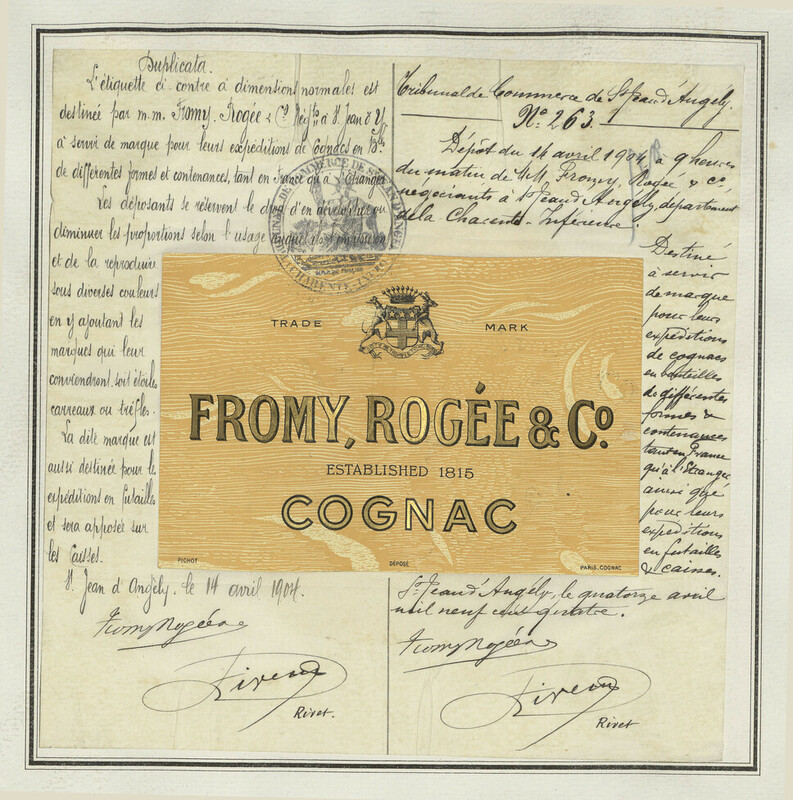 Duplicata.
L'étiquette ci-contre à dimensions normales est
destinée par m.m. Fromy, Rogée & Cº Négts à St Jean d'Ay
à servir de marque pour leurs expéditions de Cognacs en Blles
de différentes formes et contenances, tant en France qu'à l'Etranger
Les déposants se réservent le droit d'en développer ou
diminuer les proportions selon l'usage auquel
et de la reproduire
sous diverses couleurs
en y ajoutant les
marques qui leur
conviendront, soit étoiles
carreaux ou trèfles.
La dite marque est
aussi destinée pour les
expéditions en futailles
et sera apposée sur
les Caisses.
St Jean d'Angély, le 14 avril 1904.
Fromy Rogée & Co
Rivet.
Tribunal de Commerce de St Jean d'Angély.
Nº 263.
Dépôt du 14 avril 1904 à 9 heures
du matin de M.M. Fromy, Rogée & Cº,
négociants à St Jean d'Angély, département
de la Charente-Inférieure.
Destiné
à servir
de marque
pour leurs
expéditions
de cognacs
en bouteilles
de différentes
formes &
contenances
tant en France
qu'à l'Etranger
ainsi que
pour leurs
expéditions
en futailles
& caisses.
St Jean d'Angély, le quatorze avril
mil neuf cent quatre.
Fromy Rogée & Co
Rivet
TRIBUNAL DE COMMERCE DE ST JEAN D'ANGELY
CHARENTE-INFRE
TRADE MARK
FROMY, ROGÉE & Cº
ESTABLISHED 1815
COGNAC
PICHOT DÉPOSÉ PARIS, COGNAC